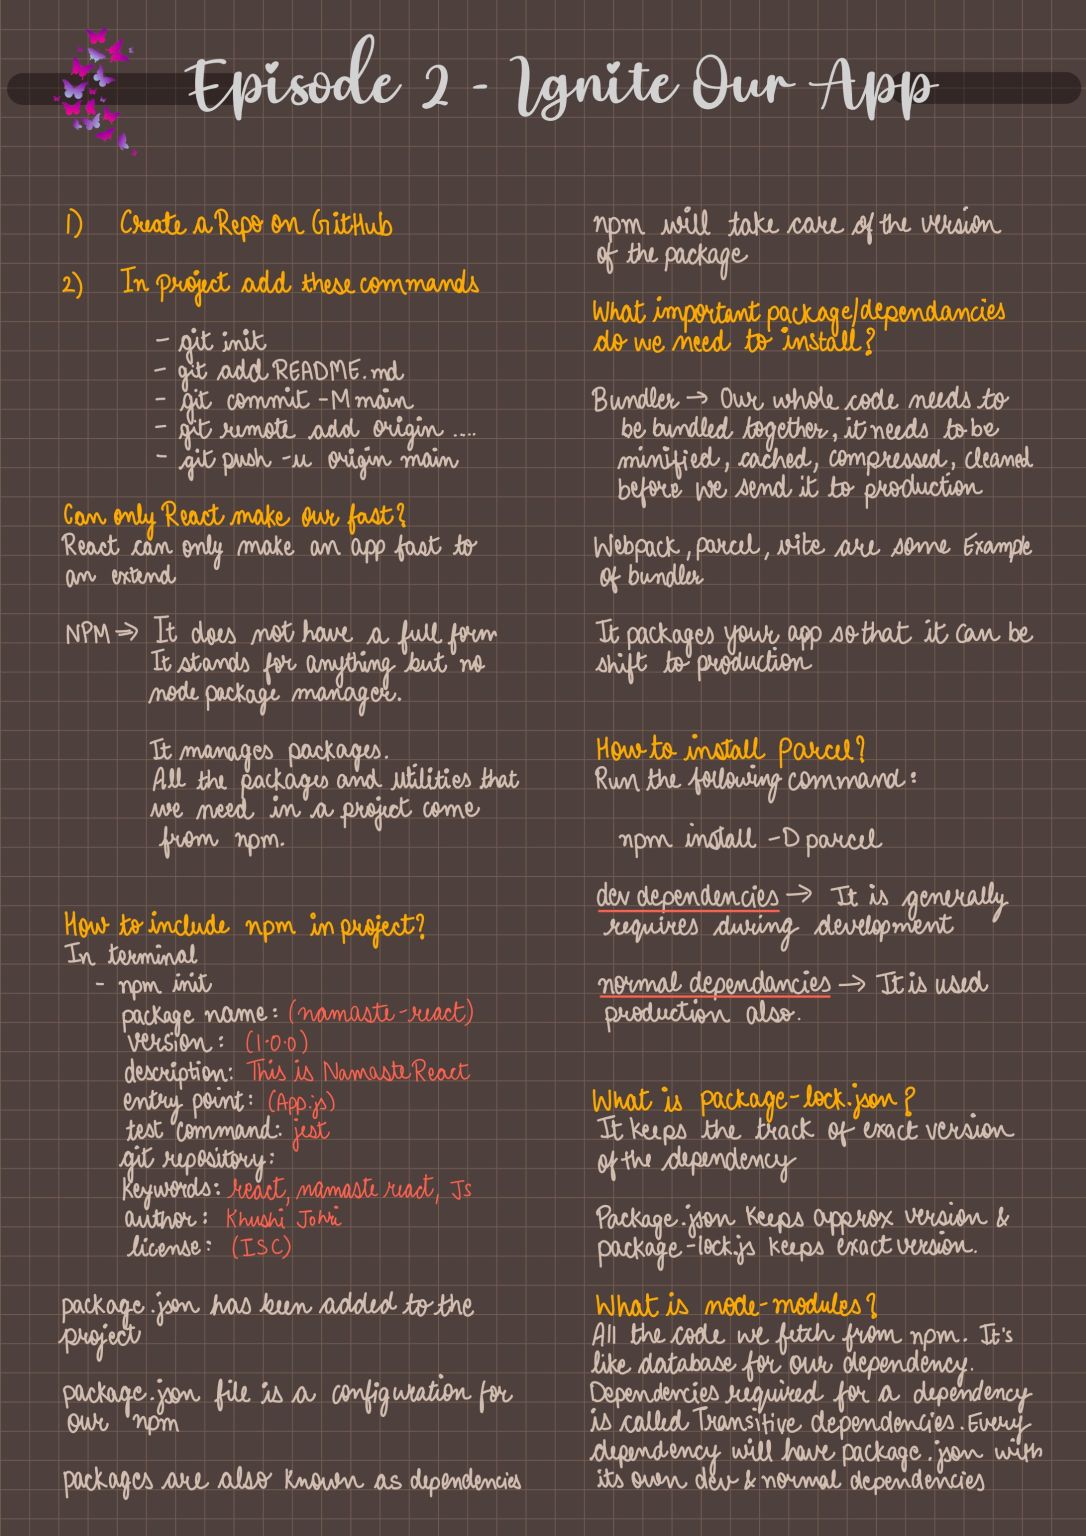 Episode 2 - Ignite Our App
1) Create a Repo on GitHub
2) In project add these commands
- git init
- git add README.md
- git commit -M main
- git remote add origin ....
- git push -u origin main
Can only React make our fast?
React can only make an app fast to
an extend
NPM ⇒ It does not have a full form
It stands for anything but no
node package manager.
It manages packages.
All the packages and utilities that
we need in a project come
from npm.
How to include npm in project?
In terminal
- npm init
package name: (namaste-react)
version: (1.0.0)
description: This is Namaste React
entry point: (App.js)
test command: jest
git repository:
keywords: react, namaste react, Js
author: Khushi Johri
license: (ISC)
package.json has been added to the
project
package.json file is a configuration for
our npm
packages are also known as dependencies
npm will take care of the version
of the package
What important package/dependancies
do we need to install?
Bundler → Our whole code needs to
be bundled together, it needs to be
minified, cached, compressed, cleaned
before we send it to production
Webpack, parcel, vite are some Example
of bundler
It packages your app so that it can be
shift to production
How to install Parcel?
Run the following command:
npm install -D parcel
dev dependencies → It is generally
requires during development
normal dependancies → It is used
production also.
What is package-lock.json?
It keeps the track of exact version
of the dependency
Package.json keeps approx version &
package-lock.js keeps exact version.
What is node-modules?
All the code we fetch from npm. It's
like database for our dependency.
Dependencies required for a dependency
is called Transitive dependencies. Every
dependency will have package.json with
its own dev & normal dependencies